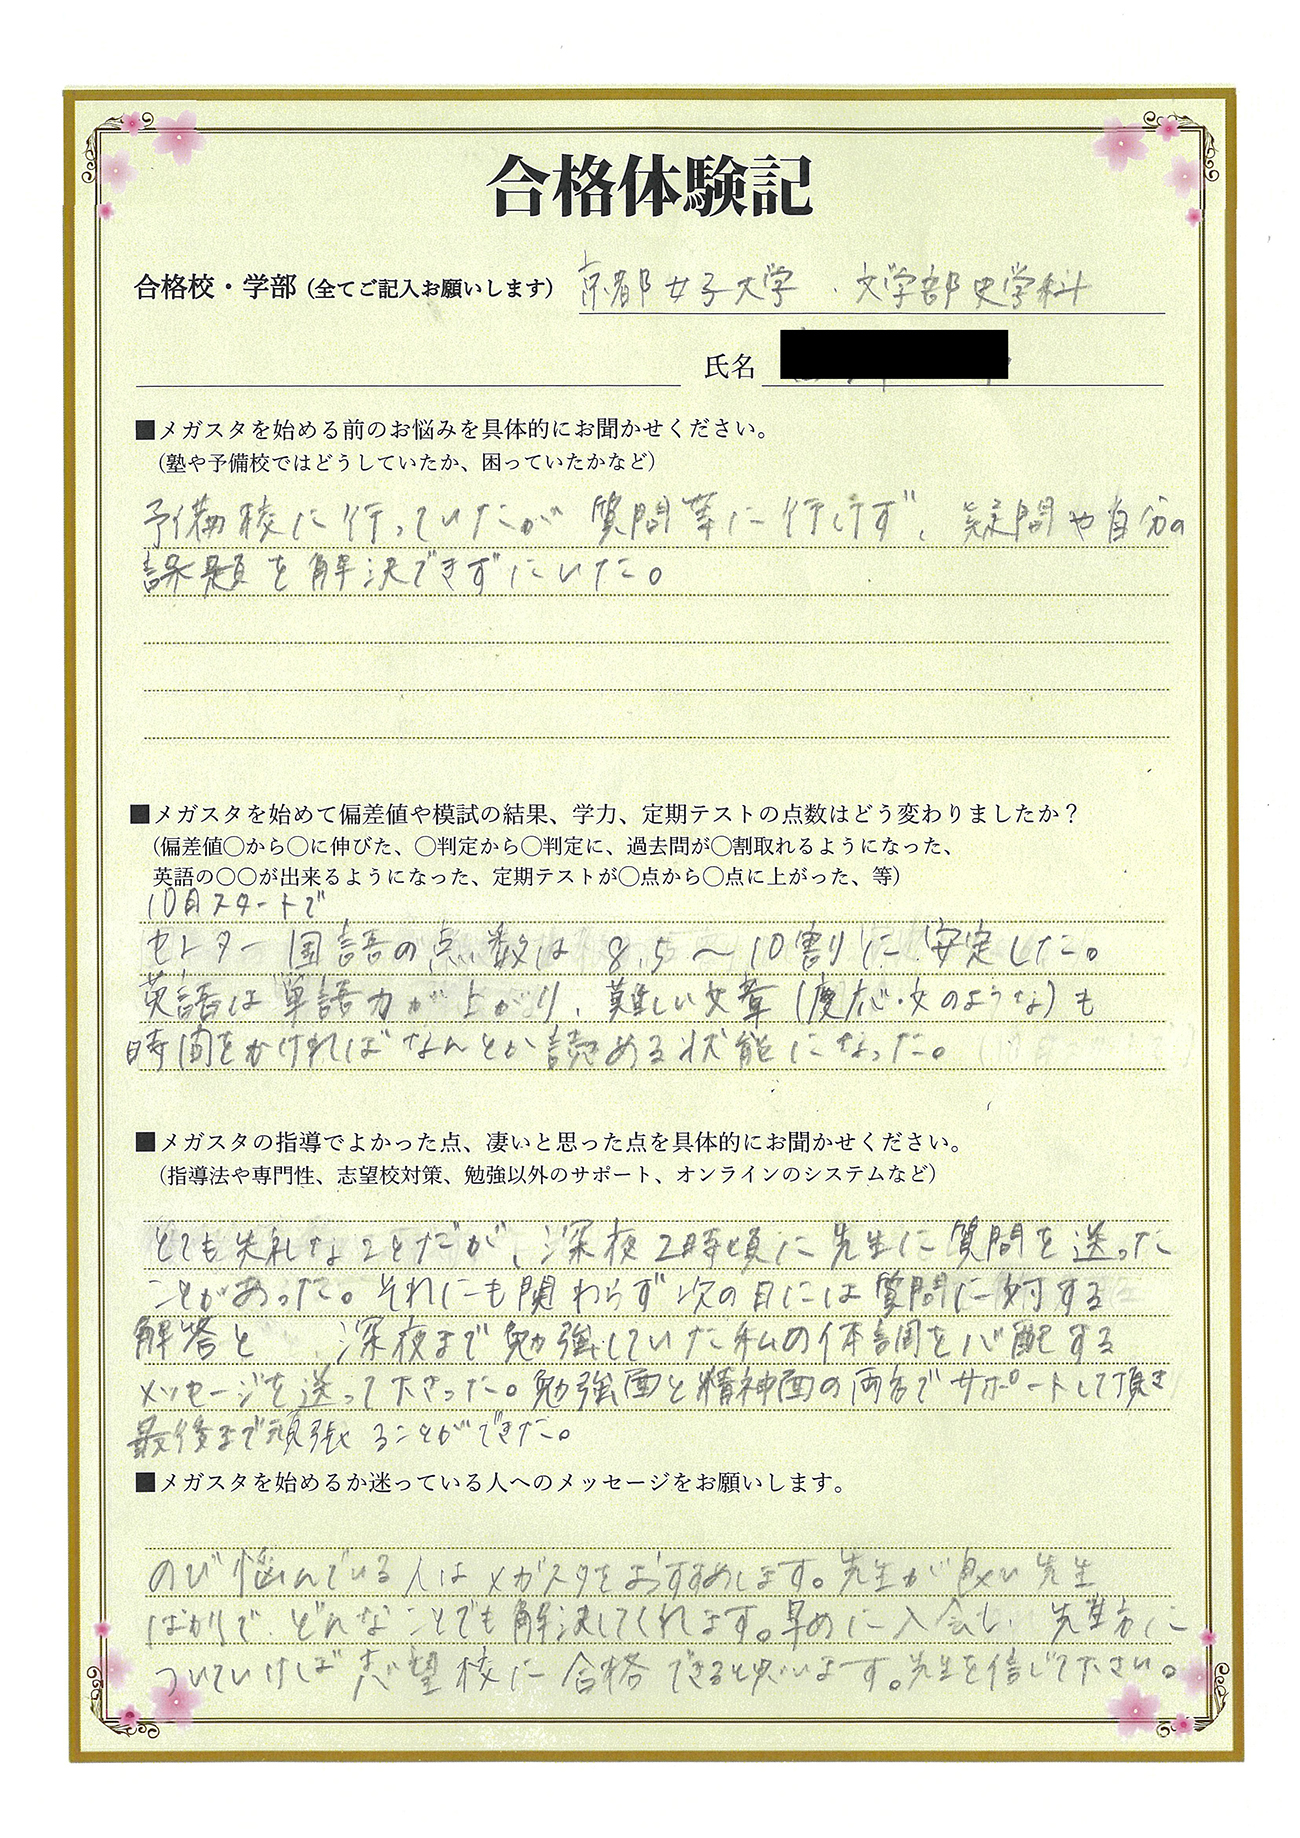 合格体験記
合格校・学部 (全てご記入お願いします) 京都女子大学 . 文学部史学科
氏名
■メガスタを始める前のお悩みを具体的にお聞かせください。
(塾や予備校ではどうしていたか、困っていたかなど)
予備校に行っていたが 質問等に行けず、疑問や自分の
課題を解決できずにいた。
■メガスタを始めて偏差値や模試の結果、学力、定期テストの点数はどう変わりましたか？
(偏差値〇から〇に伸びた、〇判定から〇判定に、過去問が〇割取れるようになった、
英語の〇〇が出来るようになった、定期テストが〇点から〇点に上がった、等)
10月スタートで
センター国語の点数は 8.5〜10割に安定した。
英語は単語力が上がり、難しい文章(慶応・文のような)も
時間をかければなんとか読める状態になった。
■メガスタの指導でよかった点、凄いと思った点を具体的にお聞かせください。
(指導法や専門性、志望校対策、勉強以外のサポート、オンラインのシステムなど)
とても失礼なことだが、深夜2時頃に先生に質問を送った
ことがあった。それにも関わらず次の日には質問に対する
解答と 深夜まで勉強していた私の体調を心配する
メッセージを送って下さった。勉強面と精神面の両方でサポートして頂き
最後まで頑張ることができた。
■メガスタを始めるか迷っている人へのメッセージをお願いします。
のび悩んでいる人はメガスタをおすすめします。先生が良い先生
ばかりで、どんなことでも解決してくれます。早めに入会し、先生方に
ついていけば志望校に合格できると思います。先生を信じて下さい。